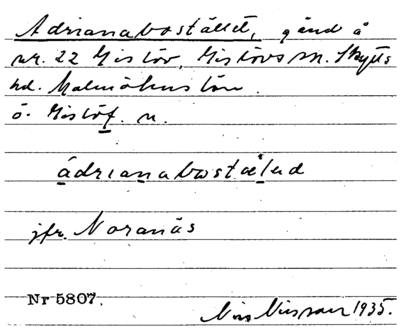 Adrianabostället, gård å
nr. 22 Gislöv, Gislövs sn. Skytts
hd. Malmöhus län.
ö. Gislöf. n.
ádrianabostælad
jfr. Noranäs
Nr 5807. Nils Nilsson 1935.